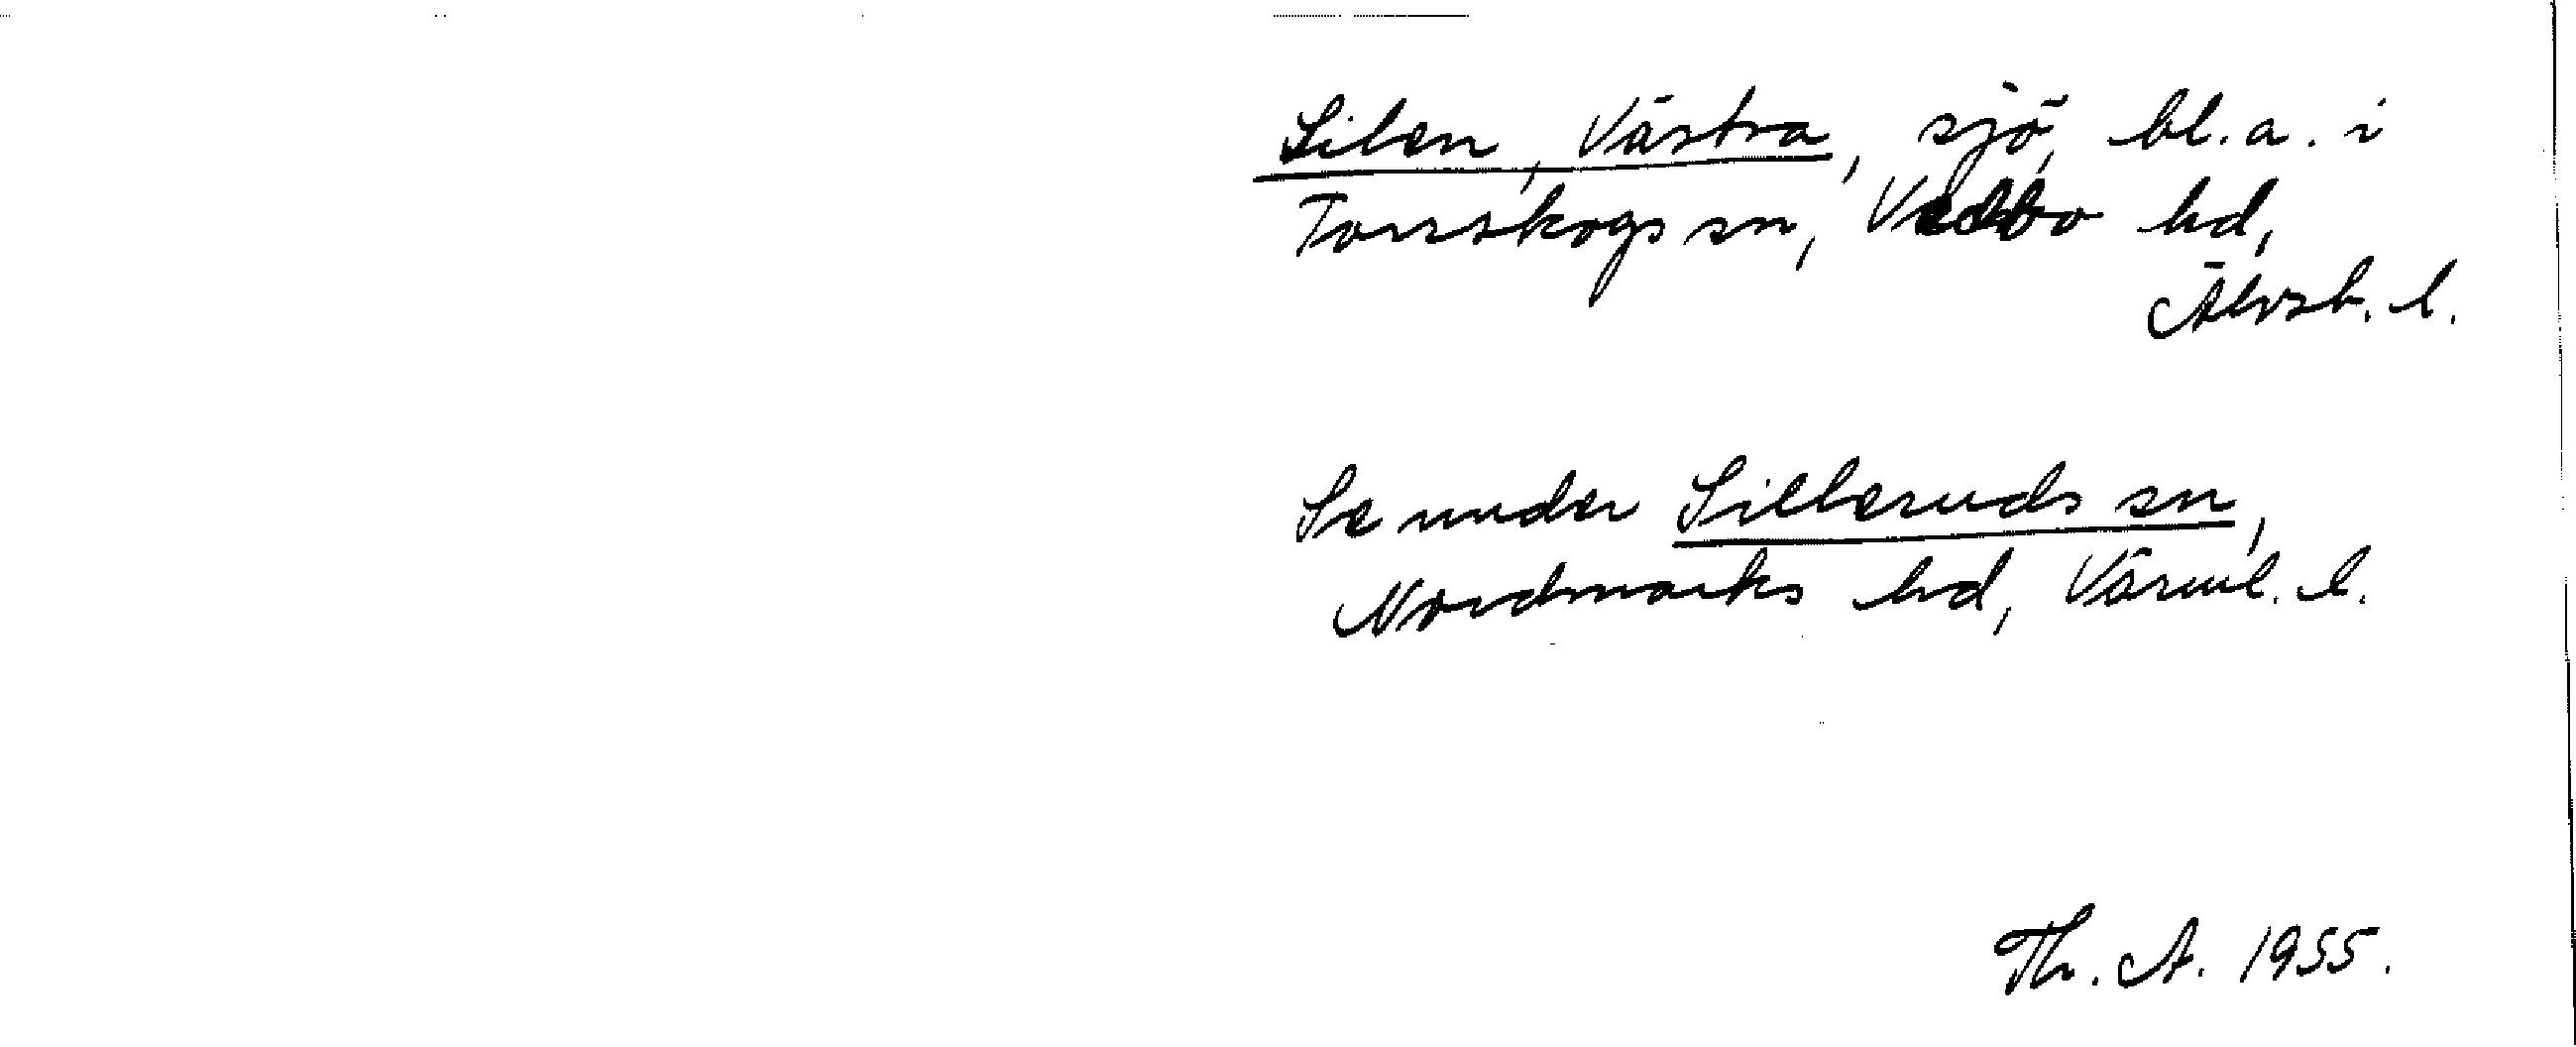 Silen, Västra, sjö, bl. a. i
Torrskogs sn, Vedbo hd,
Älvsb. l.
Se under Silleruds sn,
Nordmarks hd, Värml. l.
Th. A. 1955.